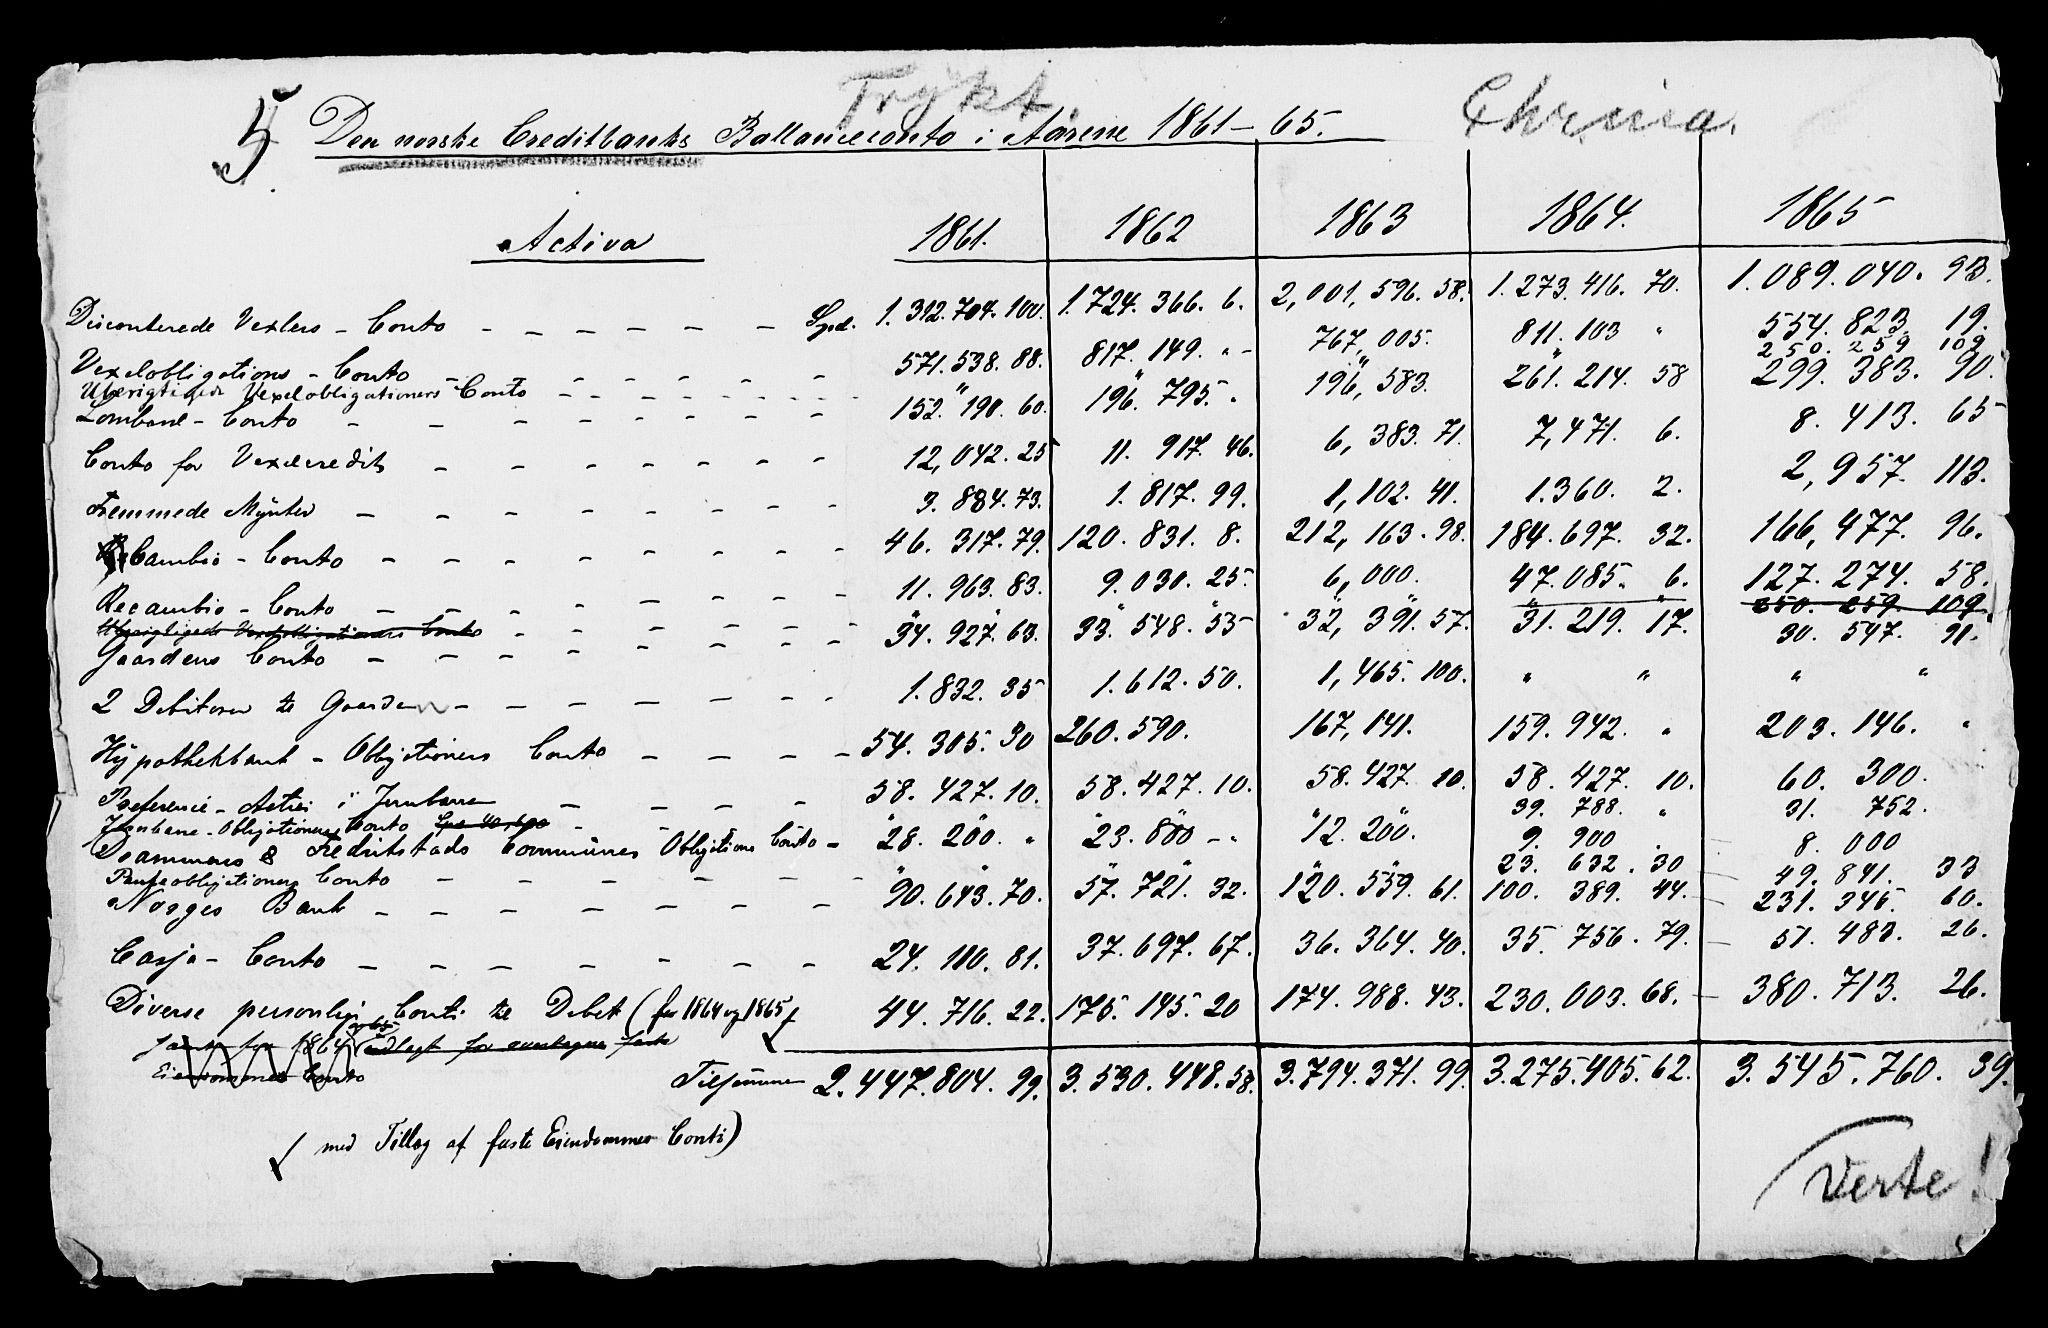 Trykt.
Chrnia.
5 Den norske Creditbanks Ballanceconto i Aarene 1861-65.
Activa 1861. 1862 1863 1864. 1865
Disconterede Vexlers - Conto - - - - - - Spd. 1.312.704.100. 1.724.366.6. 2,001,596.58. 1.273.416.70. 1.089.040.93.
Vexelobligations - Conto - - - - - - 571.538.88. 817.149. " - 767,005. 811.103 " 554.823. 19.
Uberigtigede Vexelobligationers Conto - - - - - - " " " " 250.259 109
Lombard - Conto - - - - - - 152.190.60. 196.795. " 196,583. 261.214.58 299.383.90.
Conto for Vexelcredits - - - - - - 12,042.25 11.917.46. 6,383.71. 7,471.6. 8.413.65
Fremmede Mynter - - - - - - 3.884.73. 1.817.99. 1,102.41. 1.360.2. 2,957.113.
Cambio - Conto - - - - - - 46.317.79. 120.831.8. 212,163.98. 184.697.32. 166,477.96.
Recambio - Conto - - - - - - 11.963.83. 9.030.25. 6,000. 47.085.6. 127.274.58.
Uberigtigede Vexelobligationers Conto - - - - - " " " " " " " " 250.259.109.
Gaardens Conto - - - - - - 34.927.63. 33.548.55 32,391.57. 31.219.17. 30.547.91.
2 Debitorer te Gaarden - - - - - - 1.832.35 1.612.50. 1,465.100. " " " "
Hypothekbank - Obligationers Conto - - - - 54.305.30 260.590. 167,141. 159.942. " 203.146. "
Preference - Actier i Jernbanen - - - - 58.427.10. 58.427.10. 58.427.10. 58.427.10. 60.300.
Jernbane-Obligationers Conto - - " " " 39.788. " 31.752.
Drammens & Fredrikstads Communes Obligations Conto - 28.200. " 23.800 - " 12.200. 9.900 8.000
Panteobligationers Conto - - - - - - " " " " " 23.632.30 49.841.33
Norges Bank - - - - - - 90.643.70. 57.721.32. 120.559.61. 100.389.44. 231.345.60.
Cassa - Conto - - - - - - 24.110.81. 37.697.67. 36.364.40. 35.756.79. 51.483.26.
Diverse personlige Conti te Debet (for 1864 og 1865 44.716.22. 175.145.20 174.988.43. 230.003.68. 380.713.26.
for 1864 for faste
Eiendommes Conto
Tilsammen 2.447.804.99. 3.530.448.58. 3.794.371.99. 3.275.405.62. 3.545.760.39.
med Tillæg af faste Eiendommes Conti)
Verte!